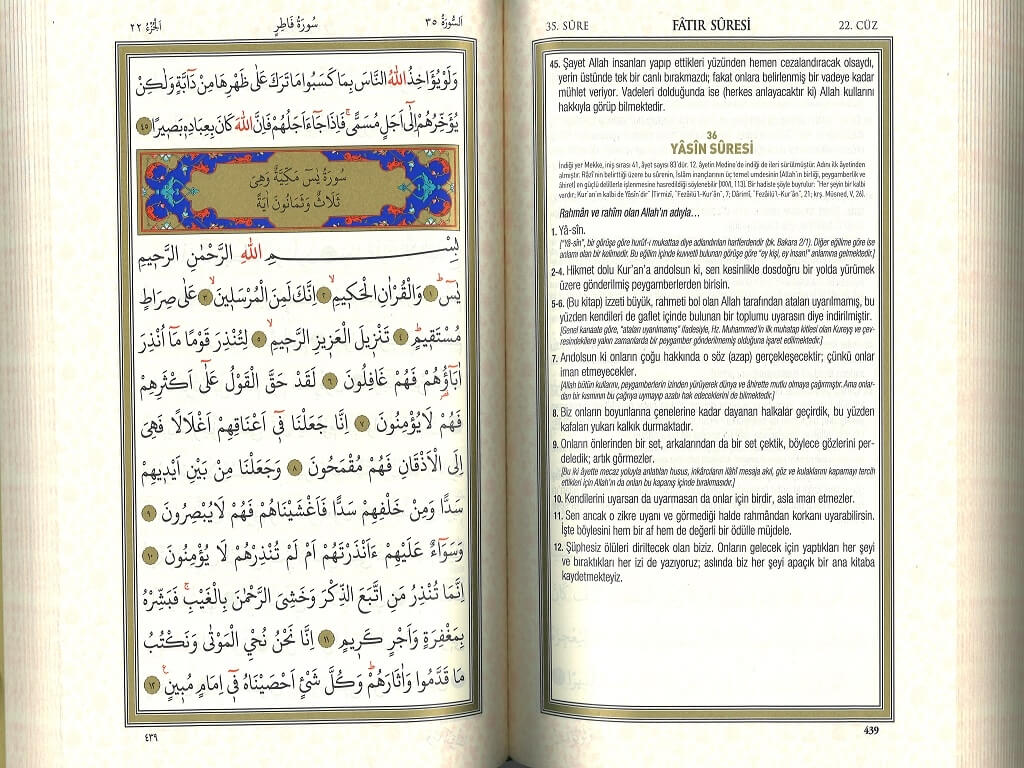 الجزء ٢٢
سورة فاطر
السورة ٣٥
وَلَوْ يُؤَاخِذُ اللّٰهُ النَّاسَ بِمَا كَسَبُوا مَا تَرَكَ عَلٰى ظَهْرِهَا مِنْ دَٓابَّةٍ وَلٰكِنْ
يُؤَخِّرُهُمْ اِلٰٓى اَجَلٍ مُسَمًّىۚ فَاِذَا جَٓاءَ اَجَلُهُمْ فَاِنَّ اللّٰهَ كَانَ بِعِبَادِه۪ بَص۪يرًا ٤٥
سُورَةُ يٰسٓ مَكِّيَّةٌ وَهِىَ
ثَلَاثٌ وَثَمَانُونَ اٰيَةً
بِسْمِ اللّٰهِ الرَّحْمٰنِ الرَّح۪يمِ
يٰسٓۜ ١ وَالْقُرْاٰنِ الْحَك۪يمِۙ ٢ اِنَّكَ لَمِنَ الْمُرْسَل۪ينَۙ ٣ عَلٰى صِرَاطٍ
مُسْتَق۪يمٍۜ ٤ تَنْز۪يلَ الْعَز۪يزِ الرَّح۪يمِۙ ٥ لِتُنْذِرَ قَوْمًا مَٓا اُنْذِرَ
اٰبَٓاؤُ۬هُمْ فَهُمْ غَافِلُونَ ٦ لَقَدْ حَقَّ الْقَوْلُ عَلٰٓى اَكْثَرِهِمْ
فَهُمْ لَا يُؤْمِنُونَ ٧ اِنَّا جَعَلْنَا ف۪ٓى اَعْنَاقِهِمْ اَغْلَالًا فَهِىَ
اِلَى الْاَذْقَانِ فَهُمْ مُقْمَحُونَ ٨ وَجَعَلْنَا مِنْ بَيْنِ اَيْد۪يهِمْ
سَدًّا وَمِنْ خَلْفِهِمْ سَدًّا فَاَغْشَيْنَاهُمْ فَهُمْ لَا يُبْصِرُونَ ٩
وَسَوَٓاءٌ عَلَيْهِمْ ءَاَنْذَرْتَهُمْ اَمْ لَمْ تُنْذِرْهُمْ لَا يُؤْمِنُونَ ١٠
اِنَّمَا تُنْذِرُ مَنِ اتَّبَعَ الذِّكْرَ وَخَشِىَ الرَّحْمٰنَ بِالْغَيْبِۚ فَبَشِّرْهُ
بِمَغْفِرَةٍ وَاَجْرٍ كَر۪يمٍ ١١ اِنَّا نَحْنُ نُحْيِ الْمَوْتٰى وَنَكْتُبُ
مَا قَدَّمُوا وَاٰثَارَهُمْۜ وَكُلَّ شَىْءٍ اَحْصَيْنَاهُ ف۪ٓى اِمَامٍ مُب۪ينٍ ١٢
٤٣٩
35. SÛRE
FÂTIR SÛRESİ
22. CÜZ
45. Şayet Allah insanları yapıp ettikleri yüzünden hemen cezalandıracak olsaydı,
yerin üstünde tek bir canlı bırakmazdı; fakat onlara belirlenmiş bir vadeye kadar
mühlet veriyor. Vadeleri dolduğunda ise (herkes anlayacaktır ki) Allah kullarını
hakkıyla görüp bilmektedir.
36
YÂSÎN SÛRESİ
İndiği yer Mekke, iniş sırası 41, âyet sayısı 83'dür. 12. âyetin Medine'de indiği de ileri sürülmüştür. Adını ilk âyetinden
almıştır. Râzî'nin belirttiği üzere bu sûrenin, İslâm inançlarının üç temel umdesinin (Allah'ın birliği, peygamberlik ve
âhiret) en güçlü delillerle işlenmesine hasredildiği söylenebilir (XXVI, 113). Bir hadiste şöyle buyrulur: "Her şeyin bir kalbi
vardır; Kur'an'ın kalbi de Yâsîn'dir" (Tirmizî, "Fezâilü'l-Kur'ân", 7; Dârimî, "Fezâilü'l-Kur'ân", 21; krş. Müsned, V, 26).
Rahmân ve rahîm olan Allah'ın adıyla...
1. Yâ-sîn.
["Yâ-sîn", bir görüşe göre hurûf-ı mukattaa diye adlandırılan harflerdendir (bk. Bakara 2/1). Diğer eğilime göre ise
anlamı olan bir kelimedir. Bu eğilim içinde kuvvetli bulunan görüşe göre "ey kişi, ey insan!" anlamına gelmektedir.]
2-4. Hikmet dolu Kur'an'a andolsun ki, sen kesinlikle dosdoğru bir yolda yürümek
üzere gönderilmiş peygamberlerden birisin.
5-6. (Bu kitap) izzeti büyük, rahmeti bol olan Allah tarafından ataları uyarılmamış, bu
yüzden kendileri de gaflet içinde bulunan bir toplumu uyarasın diye indirilmiştir.
[Genel kanaate göre, "ataları uyarılmamış" ifadesiyle, Hz. Muhammed'in ilk muhatap kitlesi olan Kureyş ve çev-
resindekilere yakın zamanlarda bir peygamber gönderilmemiş olduğuna işaret edilmektedir.]
7. Andolsun ki onların çoğu hakkında o söz (azap) gerçekleşecektir; çünkü onlar
iman etmeyecekler.
[Allah bütün kullarını, peygamberlerin izinden yürüyerek dünya ve âhirette mutlu olmaya çağırmıştır. Ama onlar-
dan bir kısmının bu çağrıya uymayıp azabı hak edeceklerini de bilmektedir.]
8. Biz onların boyunlarına çenelerine kadar dayanan halkalar geçirdik, bu yüzden
kafaları yukarı kalkık durmaktadır.
9. Onların önlerinden bir set, arkalarından da bir set çektik, böylece gözlerini per-
deledik; artık görmezler.
[Bu iki âyette mecaz yoluyla anlatılan husus, inkârcıların ilâhî mesaja akıl, göz ve kulaklarını kapamayı tercih
ettikleri için Allah'ın da onları bu kapanış içinde bırakmasıdır.]
10. Kendilerini uyarsan da uyarmasan da onlar için birdir, asla iman etmezler.
11. Sen ancak o zikre uyanı ve görmediği halde rahmândan korkanı uyarabilirsin.
İşte böylesini hem bir af hem de değerli bir ödülle müjdele.
12. Şüphesiz ölüleri diriltecek olan biziz. Onların gelecek için yaptıkları her şeyi
ve bıraktıkları her izi de yazıyoruz; aslında biz her şeyi apaçık bir ana kitaba
kaydetmekteyiz.
439